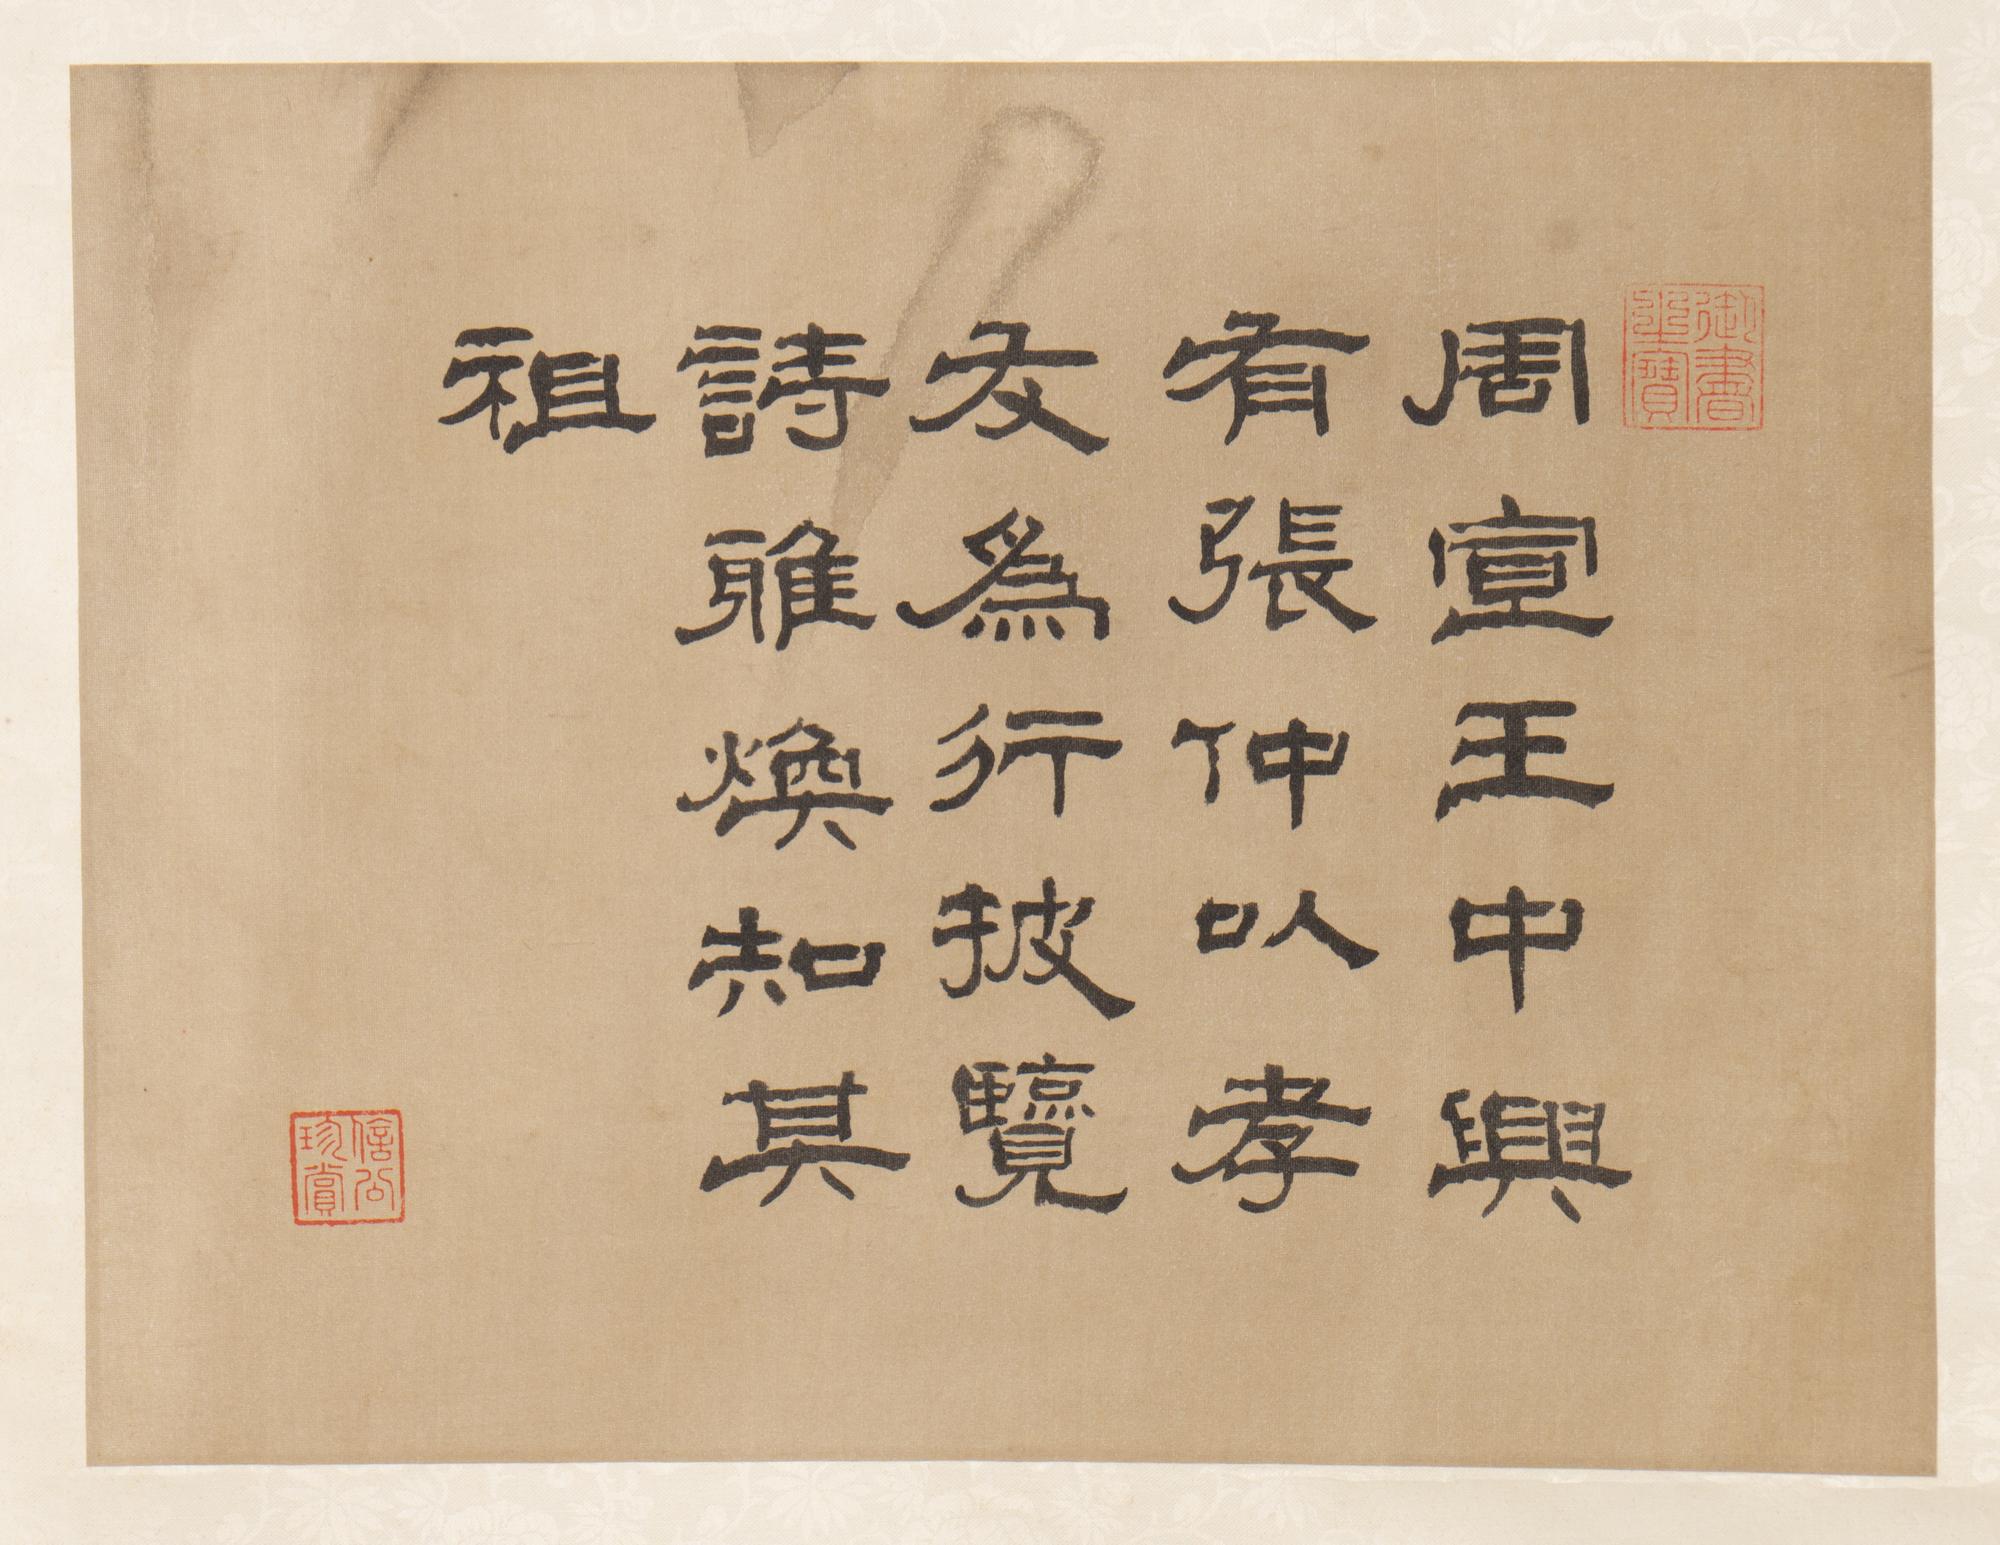 周宣王中興
有張仲以孝
友為行披覽
詩雅煥知其
祖
御書之寶
信公珍賞